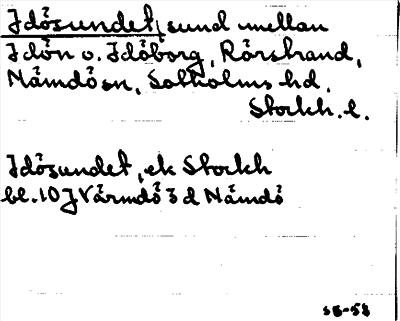 Idösundet, sund mellan
Idön o. Idöborg, Rörstrand,
Nämdö sn, Sotholms hd.
Stockh. l.
Idösundet, ek Stockh
bl. 10 J Värmdö 3 d Nämdö
SB-58